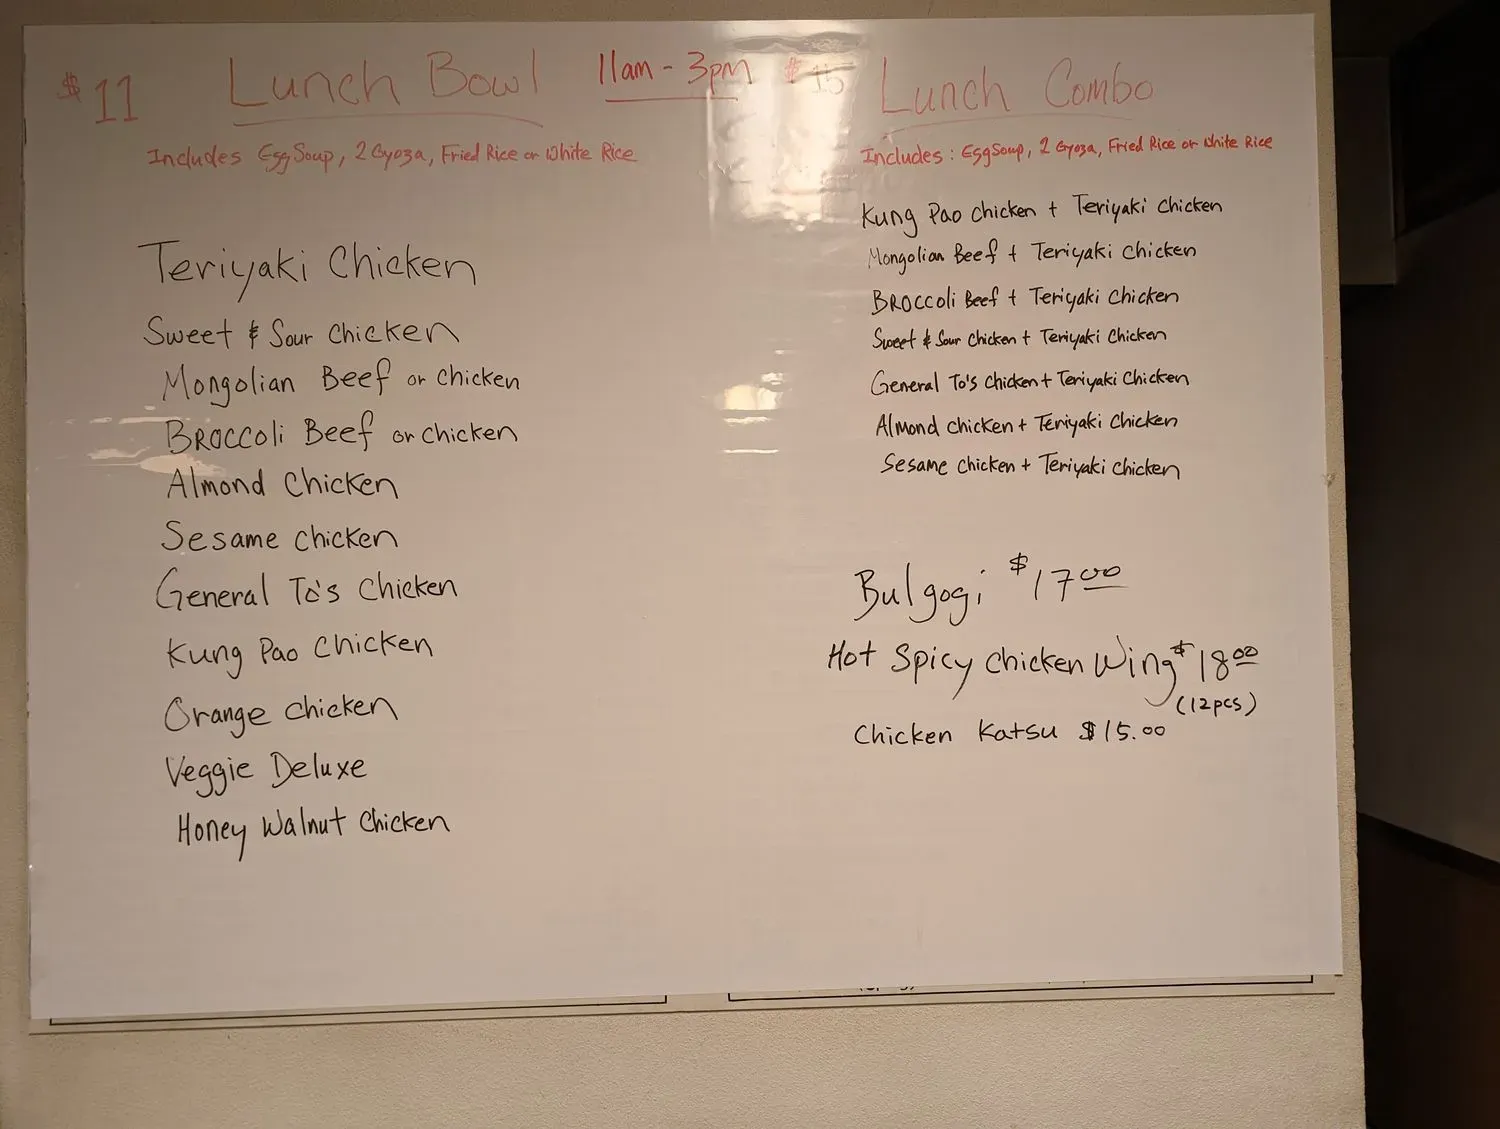 $11 Lunch Bowl 11am - 3pm $15 Lunch Combo
Includes Egg Soup, 2 Gyoza, Fried Rice or White Rice
Teriyaki Chicken
Sweet & Sour Chicken
Mongolian Beef or Chicken
Broccoli Beef or Chicken
Almond Chicken
Sesame Chicken
General To's Chicken
Kung Pao Chicken
Orange Chicken
Veggie Deluxe
Honey Walnut Chicken
Includes: Egg Soup, 2 Gyoza, Fried Rice or White Rice
Kung Pao Chicken + Teriyaki Chicken
Mongolian Beef + Teriyaki Chicken
Broccoli Beef + Teriyaki Chicken
Sweet & Sour Chicken + Teriyaki Chicken
General To's Chicken + Teriyaki Chicken
Almond Chicken + Teriyaki Chicken
Sesame Chicken + Teriyaki Chicken
Bulgogi $17.00
Hot Spicy Chicken Wing $18.00
(12pcs)
Chicken Katsu $15.00